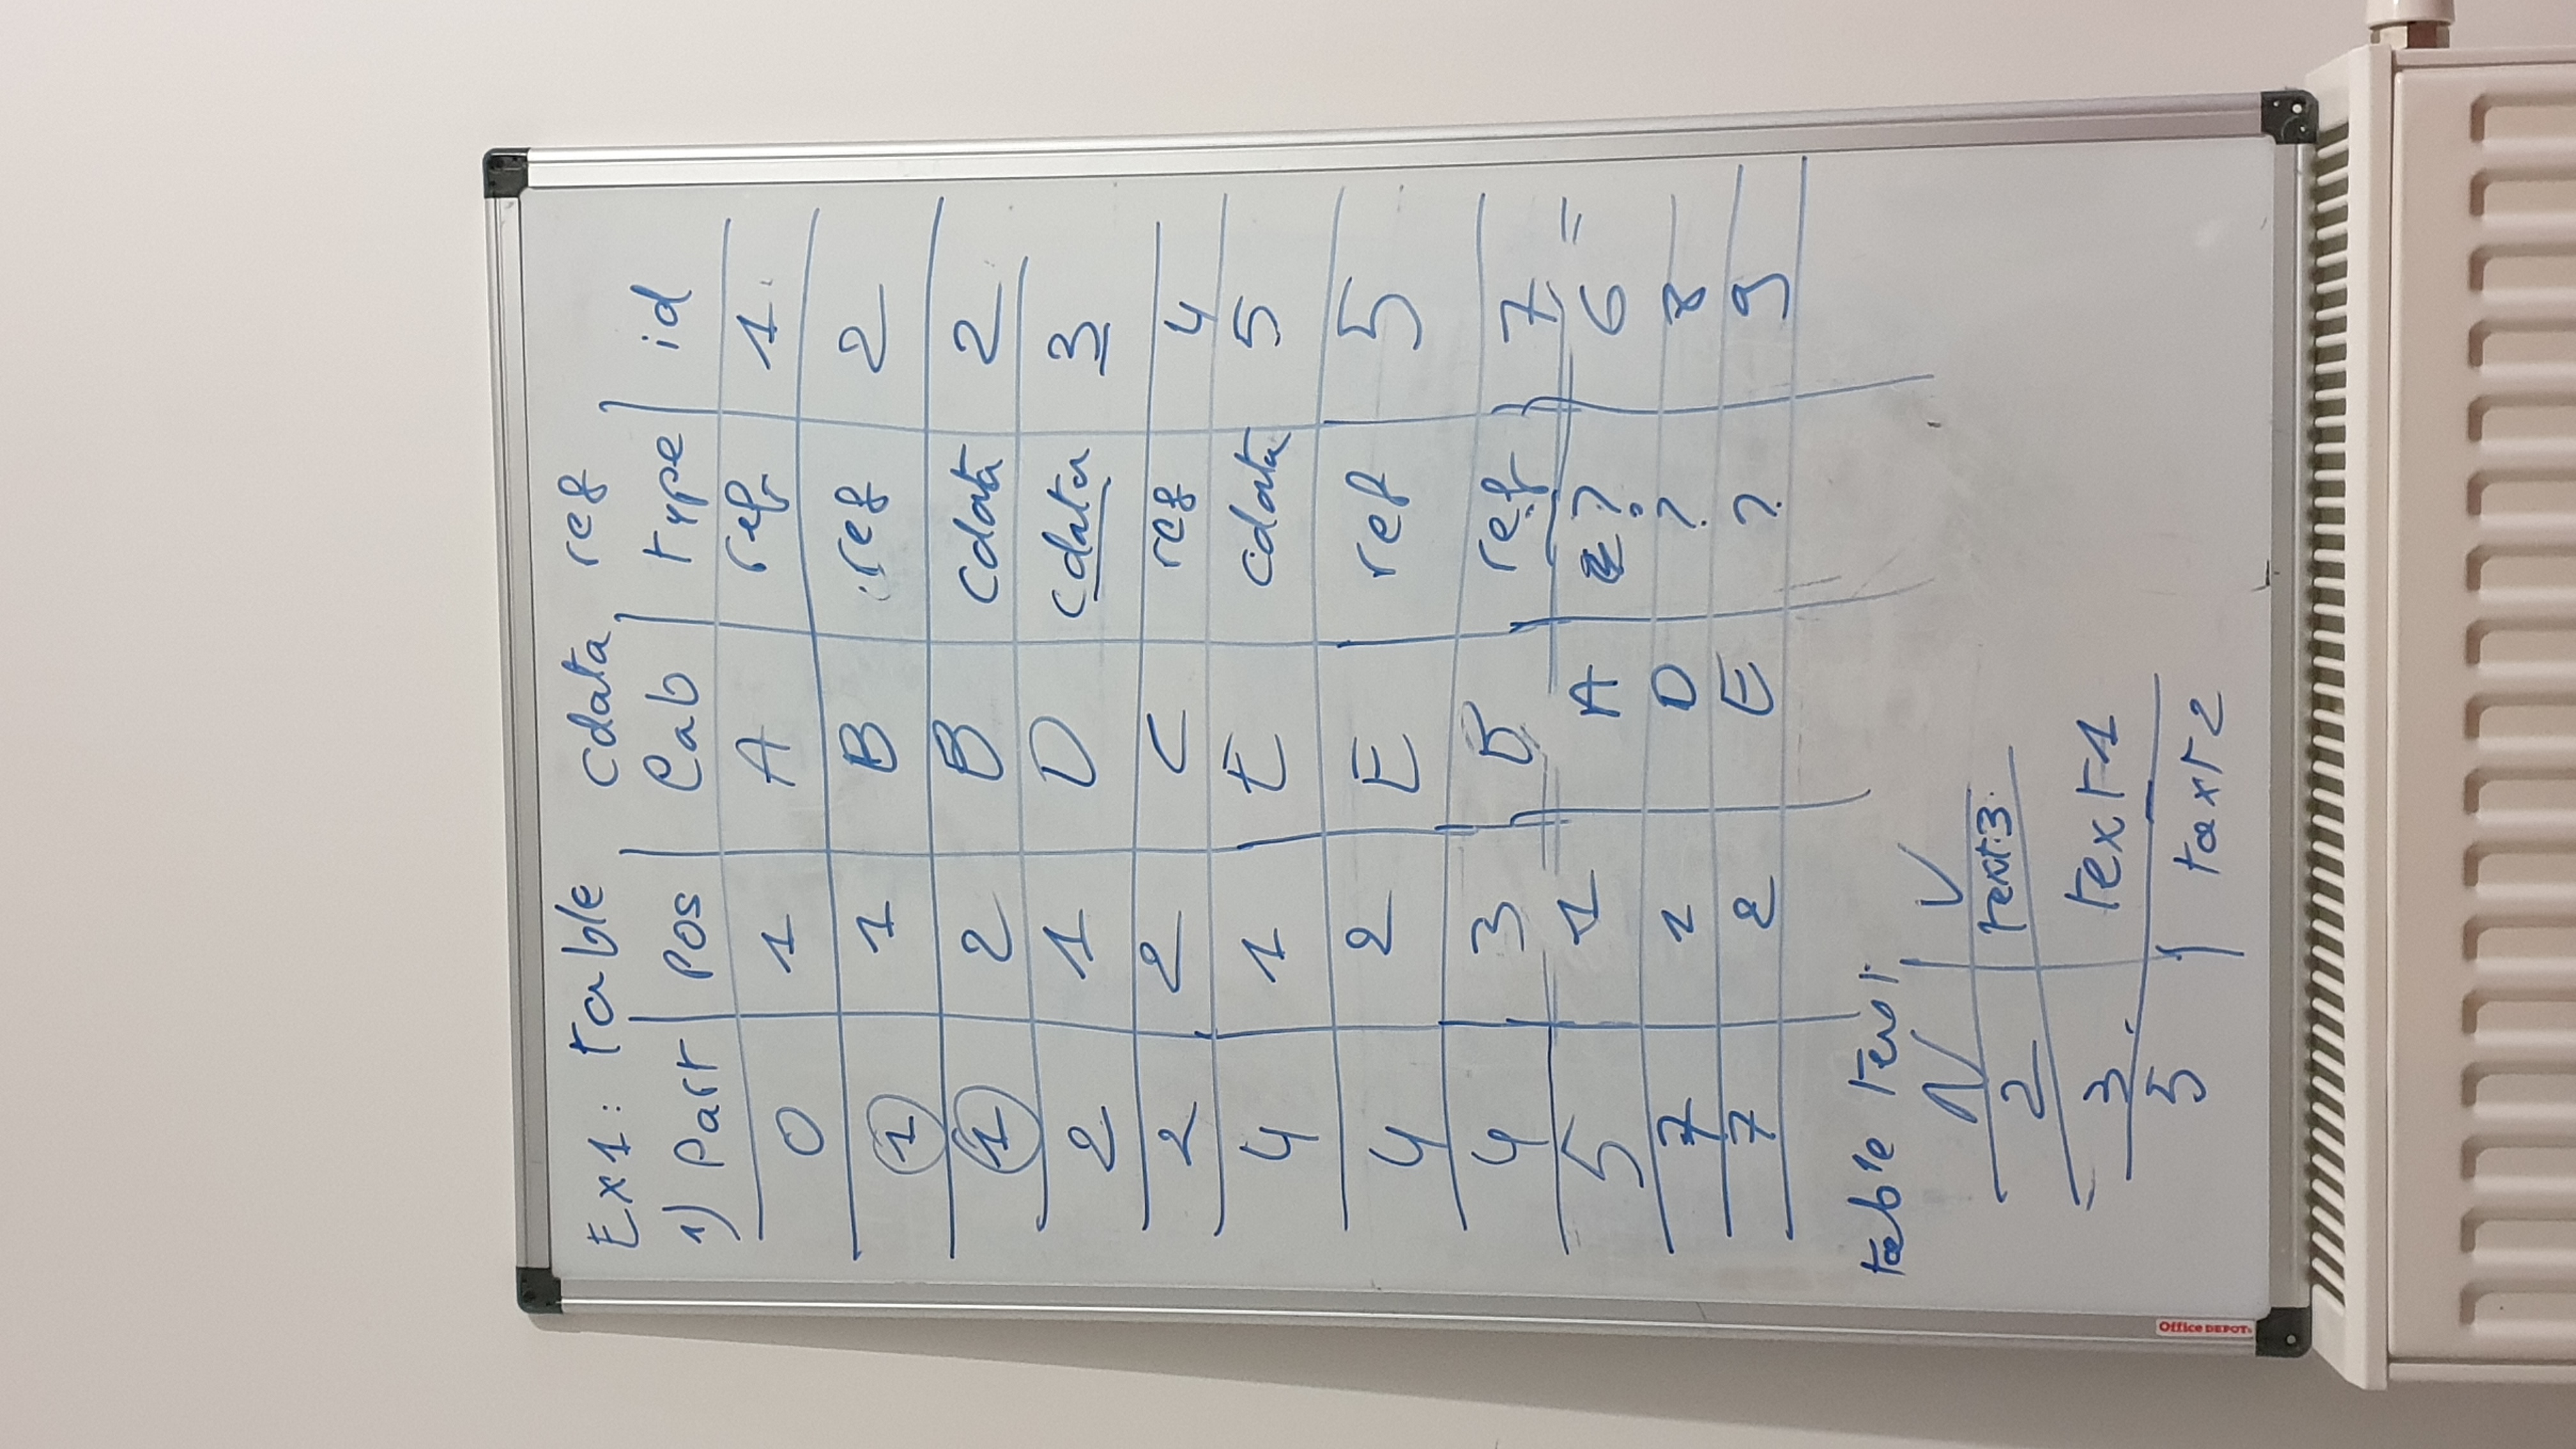 Ex1: table cdata, ref
1) Part pos Lab type id
0 1 A ref 1
1 1 B ref 2
1 2 B cdata 2
2 1 D cdata 3
2 2 C ref 4
4 1 E cdata 5
4 2 E ref 5
4 3 B ref 7
5 1 A ? 6
7 1 D ? 8
7 2 E ? 9
table text
N V
2 text3
3 text1
5 text2
Office DEPOT.